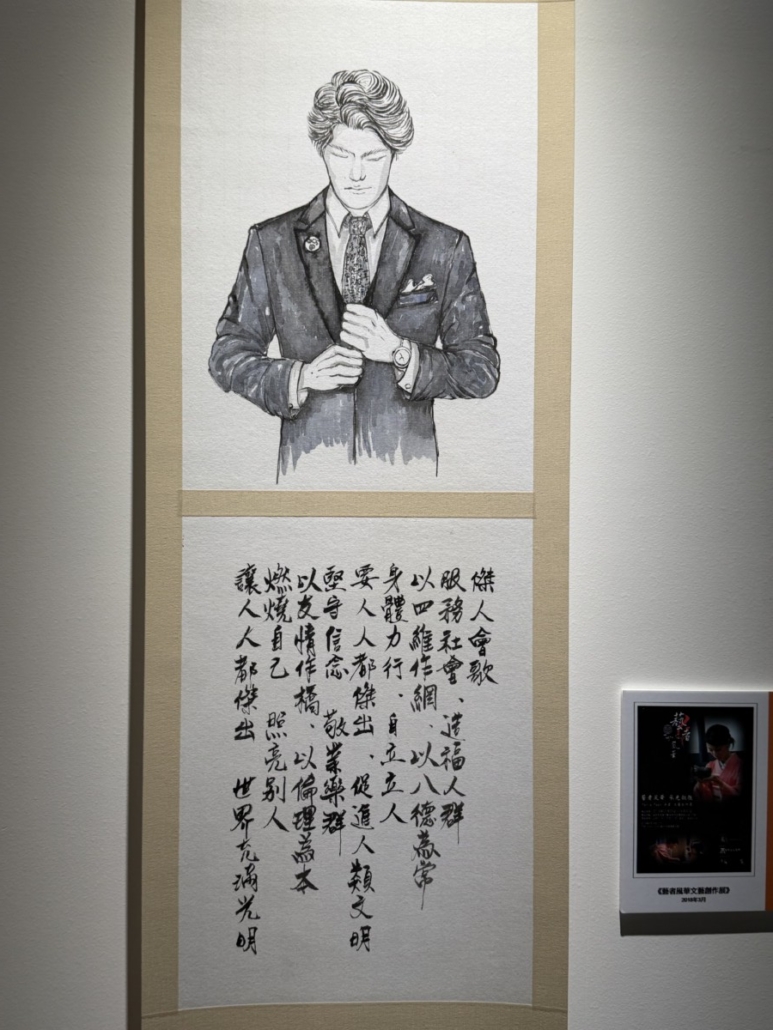 傑人會歌
服務社會、造福人群
以四維作綱、以八德為常
身體力行、自立立人
要人人都傑出、促進人類文明
堅守信念 敬業樂群
以友情作橋、以倫理為本
燃燒自己 照亮别人
讓人人都傑出 世界充滿光明
《藝者風華文藝創作展》